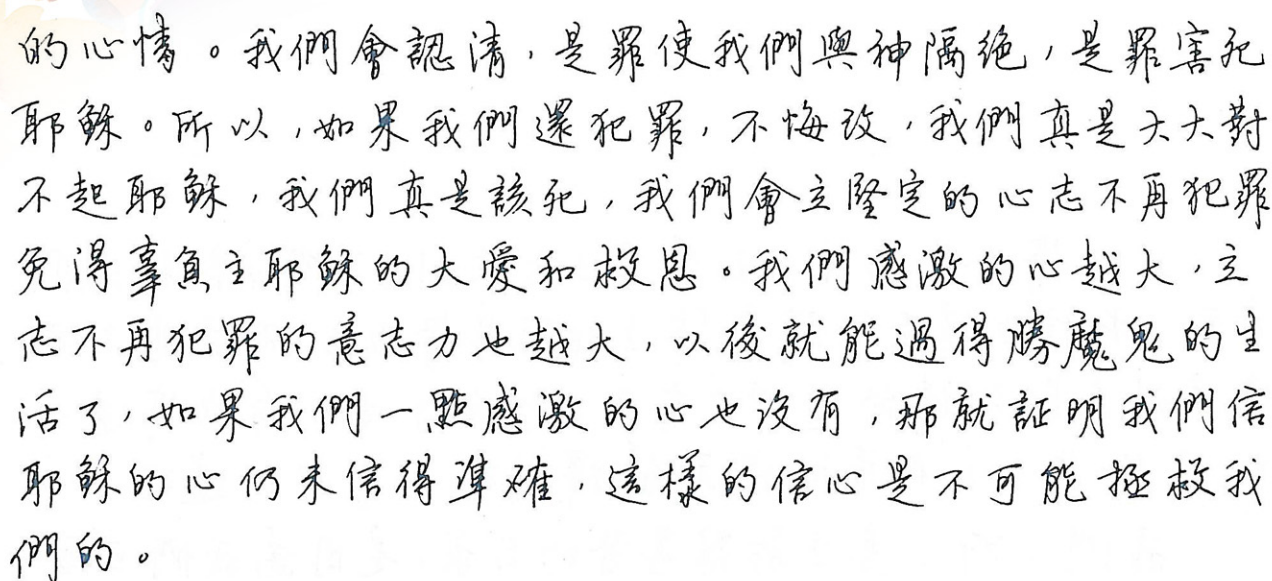 的心情。我們會認清，是罪使我們與神隔絶，是罪害死
耶穌。所以，如果我們還犯罪，不悔改，我們真是大大對
不起耶穌，我們真是該死，我們會立堅定的心志不再犯罪
免得辜負主耶穌的大愛和救恩。我們感激的心越大，立
志不再犯罪的意志力也越大，以後就能過得勝魔鬼的生
活了，如果我們一點感激的心也沒有，那就証明我們信
耶穌的心仍未信得準確，這樣的信心是不可能拯救我
們的。